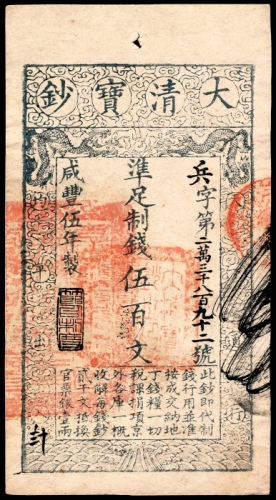 大清寶鈔
兵字第二萬三千八百九十二號
準足制錢伍百文
咸豐伍年製
此鈔即代制
錢行用並准
按成交納地
丁錢糧一切
稅課捐項京
外各庫一概
收解每錢鈔
貳千文抵換
官票銀壹兩